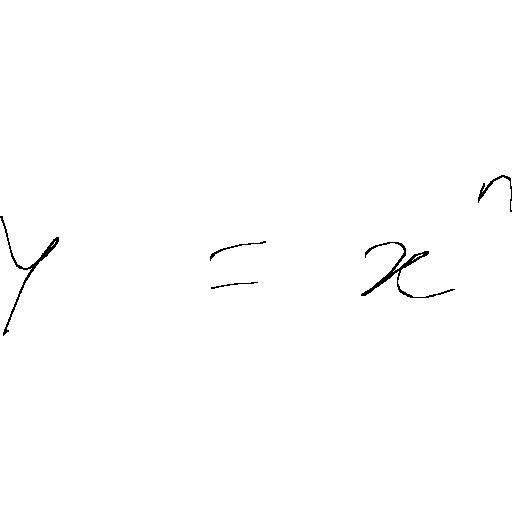 y = xⁿ